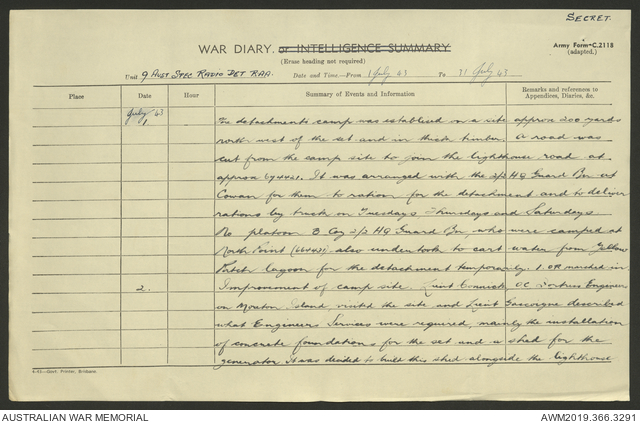 SECRET.
WAR DIARY. or INTELLIGENCE SUMMARY
Army Form C.2118
(adapted.)
(Erase heading not required)
Unit 9 Aust Spec Radio Det RAA. Date and Time.—From 1 July 43 To 31 July 43
Place
Date
Hour
Summary of Events and Information
Remarks and references to
Appendices, Diaries, &c.
July 43
1.
detachments camp was established on a site approx 200 yards
north west of the set and in thick timber. A road was
cut from the camp site to join the lighthouse road at
approx 674421. It was arranged with the 2/2 HQ Guard Bn at
Cowan for them to ration for the detachment and to deliver
rations by truck on Tuesdays Thursdays and Saturdays
platoon B Coy 2/2 HQ Guard Bn, who were camped at
North Point also undertook to cart water from Yellow
Patch lagoon for the detachment temporarily. 1 OR marched in
2.
Improvement of camp site. Lieut OC Fortress Engineers
on Moreton Island, visited the site and Lieut Gascoyne described
what Engineer Services were required, mainly the installation
of concrete foundations for the set and a shed for the
generator. It was decided to built this shed alongside the lighthouse
4-43—Govt. Printer, Brisbane.
AUSTRALIAN WAR MEMORIAL
AWM2019.366.3291